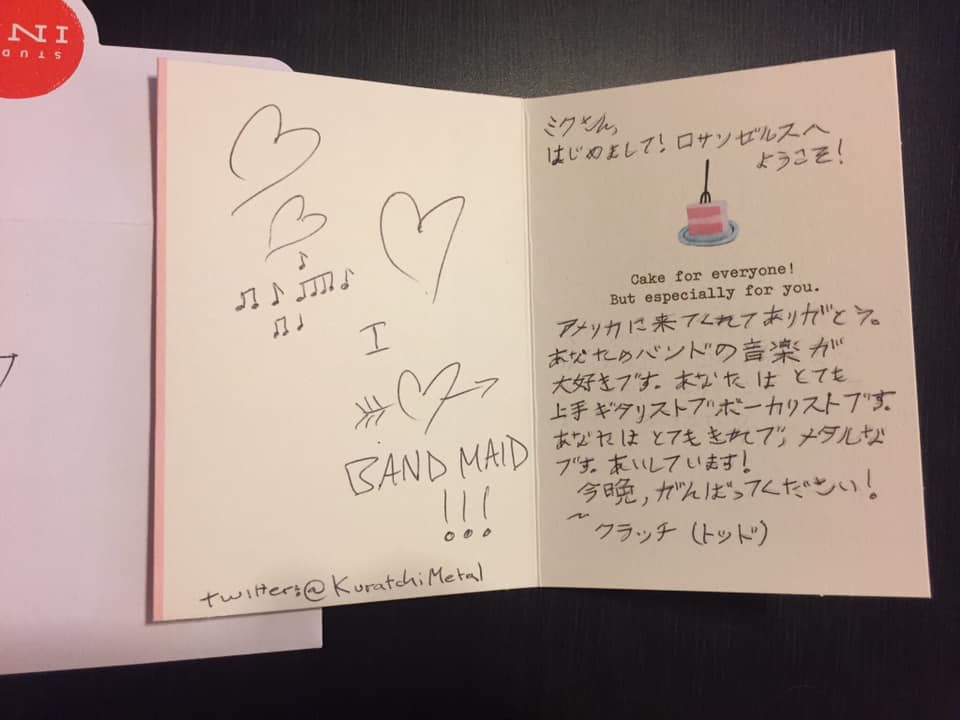 I
BAND MAID
!!!
twitter:@KuratchiMetal
ミクさん,
はじめまして! ロサンゼルスへ
ようこそ!
Cake for everyone!
But especially for you.
アメリカに来てくれてありがとう。
あなたのバンドの音楽が
大好きです。あなたはとても
上手ギタリストでボーカリストです。
あなたはとてもきれで, メタルな
です。あいしています!
今晩, がんばってください!
~ クラッチ (トッド)